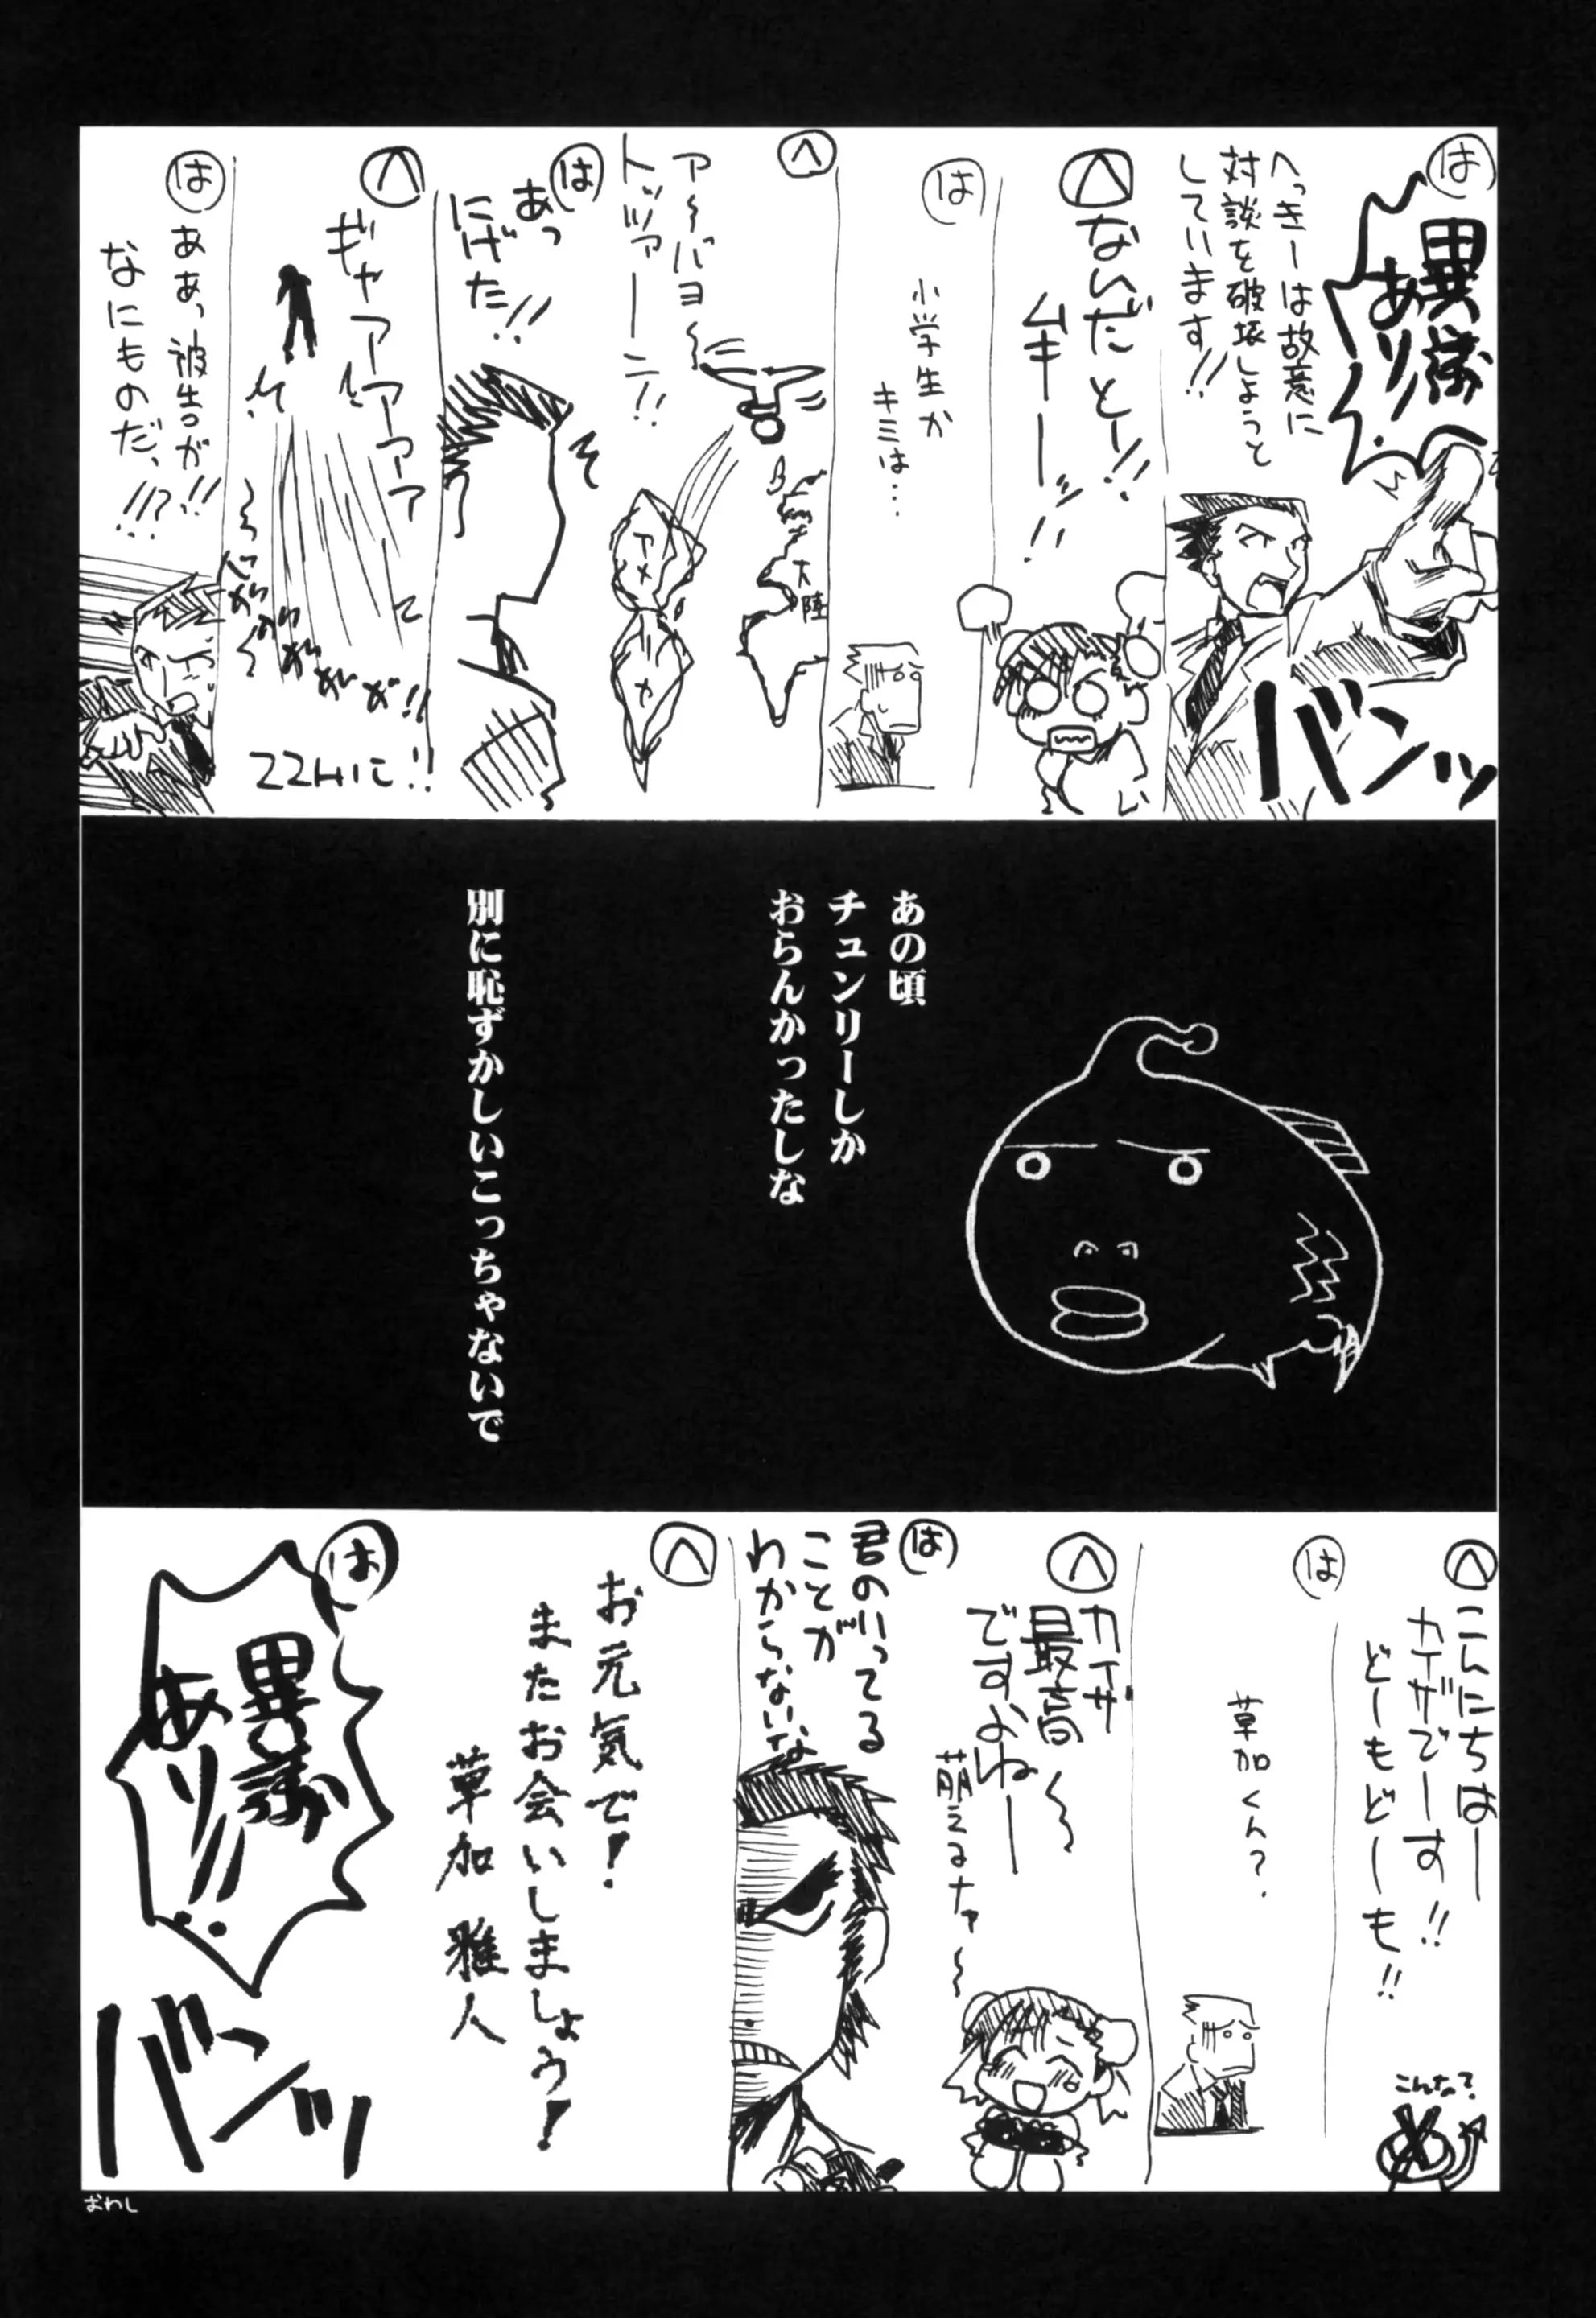 は
異議
あり!!
へっきーは故意に
対談を破壊しようと
しています!!
バンッ
へ
なんだとー!!
ムキーーッ!!
は
小学生か
キミは…
へ
ア〜バヨ〜
トッツァーン!!
大陸
アメ
は
あっ
にげた!!
へ
ギャアーアーアーアア
て
が
が
が
が
が!!
22Hに!!
は
ああっ被告が!!
なにものだっ!!!?
あの頃
チュンリーしか
おらんかったしな
別に恥ずかしいこっちゃないで
へ
こんにちはー
カイザでーす!!
どーもどーも!!
こんな?
は
草加くん?
へ
カイザ
最高
ですよねー〜
萌えるナァ〜
は
君のいってる
ことが
わからないな
へ
お元気で!
またお会いしましょう!
草加雅人
は
異議
あり!!
バンッ
おわし